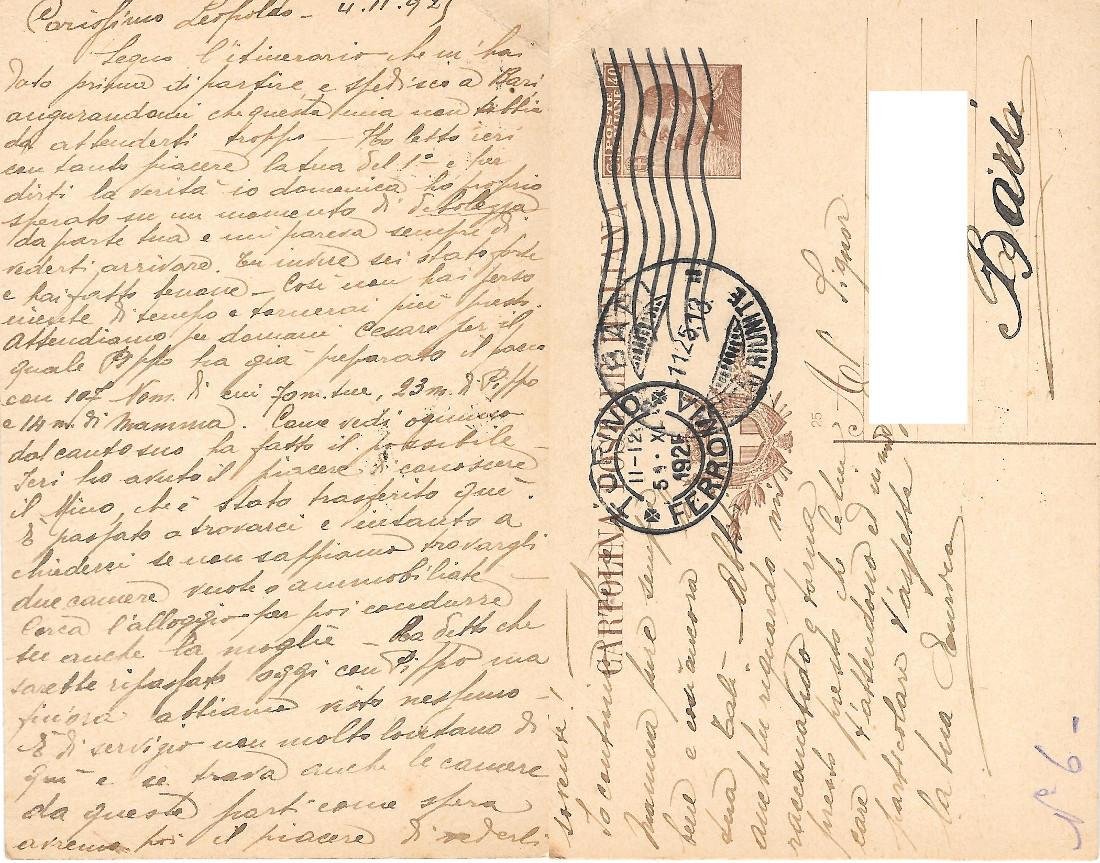 Carissimo Leopoldo - 4.11.925
Seguo l'itinerario che m'hai
dato prima di partire e spedisco a Bari
augurandomi che questa mia non abbia
da attenderti troppo - Ho letto ieri
con tanto piacere la tua del 1° e per
dirti la verità io domenica ho proprio
sperato su un momento di debolezza
da parte tua e mi pareva sempre di
vederti arrivare. Tu invece sei stato forte
e hai fatto benone - Così non hai perso
niente di tempo e tornerai più presto.
Attendiamo per domani Cesare per il
quale Pippo ha già preparato il pacco
con 107 Nom. di cui 70 m. tue, 23 m. di Pippo
e 14 m. di Mamma. Come vedi ognuno
dal canto suo ha fatto il possibile -
Ieri ho avuto il piacere di conoscere
il Nino, chè è stato trasferito quì.
È passato a trovarci e intanto a
chiederci se non sappiamo trovargli
due camere vuote o ammobiliate -
Cerca l'alloggio per poi condurre
su anche la moglie - Ha detto che
sarebbe ripassato oggi con Pippo ma
fin'ora abbiamo visto nessuno -
È di servizio non molto lontano di
quì e se trova anche le camere
da queste parti come spera
avremo poi il piacere di vederli
sovente!
Io continuo
Mamma pure sempre
bene e così ancora
tuoi Cali -
anche tu riguardo mi
raccomando e torna
presto presto che le tue
care t'attendono ed in modo
particolare t'aspetta
la tua
CARTOLINA POSTALE ITALIANA
POSTE ITALIANE 40
TORINO
FERROVIA
11-12
5 . XI
1925
RIUNITE
25
Al Signor
Bari
N° 6 -